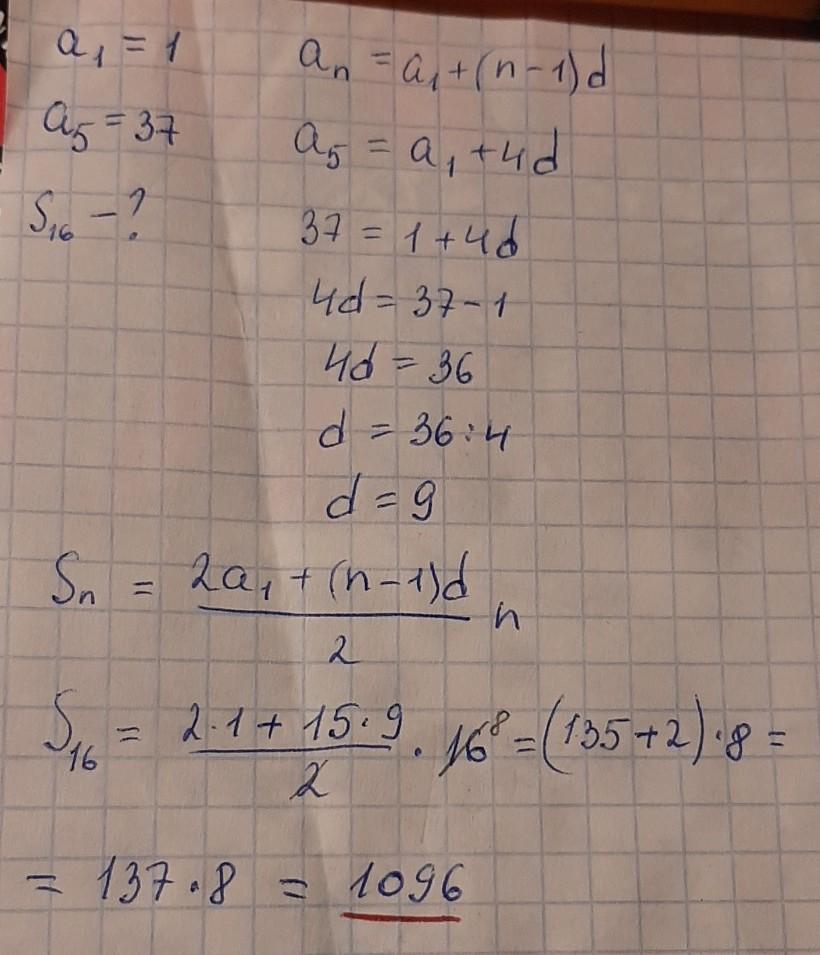 a₁ = 1
aₙ = a₁ + (n − 1)d
a₅ = 37
a₅ = a₁ + 4d
S₁₆ − ?
37 = 1 + 4d
4d = 37 − 1
4d = 36
d = 36 : 4
d = 9
Sₙ = (2a₁ + (n − 1)d)/2 n
S₁₆ = (2·1 + 15·9)/2 · 16⁸ = (135 + 2)·8 =
= 137·8 = 1096